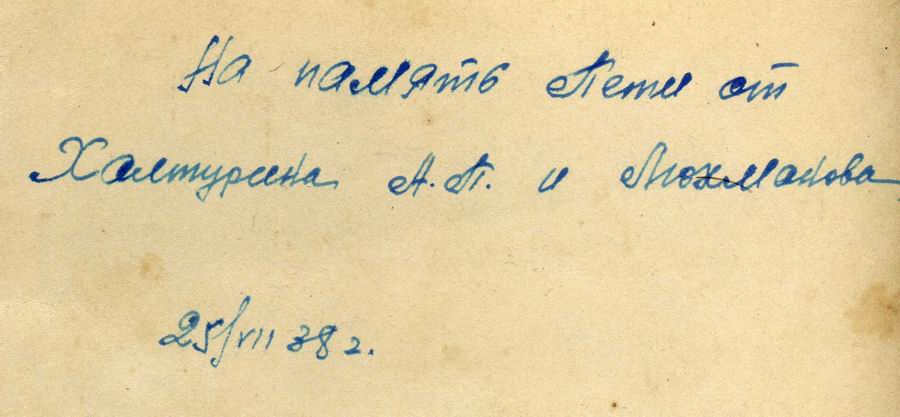 На память Пети от
Халтурина А.П. и
25/VII 38 г.